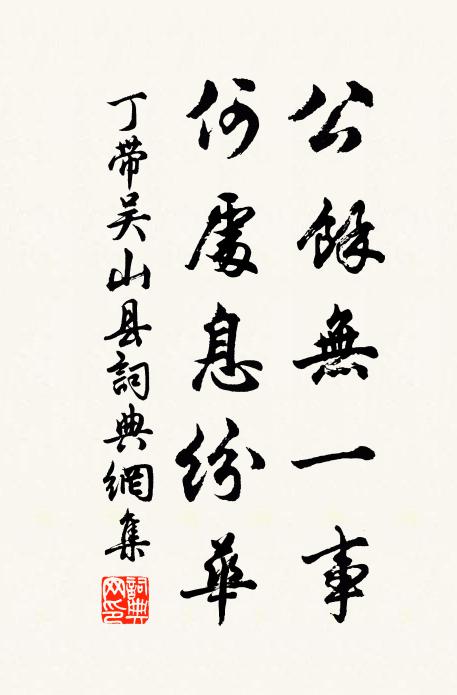 公餘無一事
何處息紛華
丁帶吴山县詞典網集
詞典网印